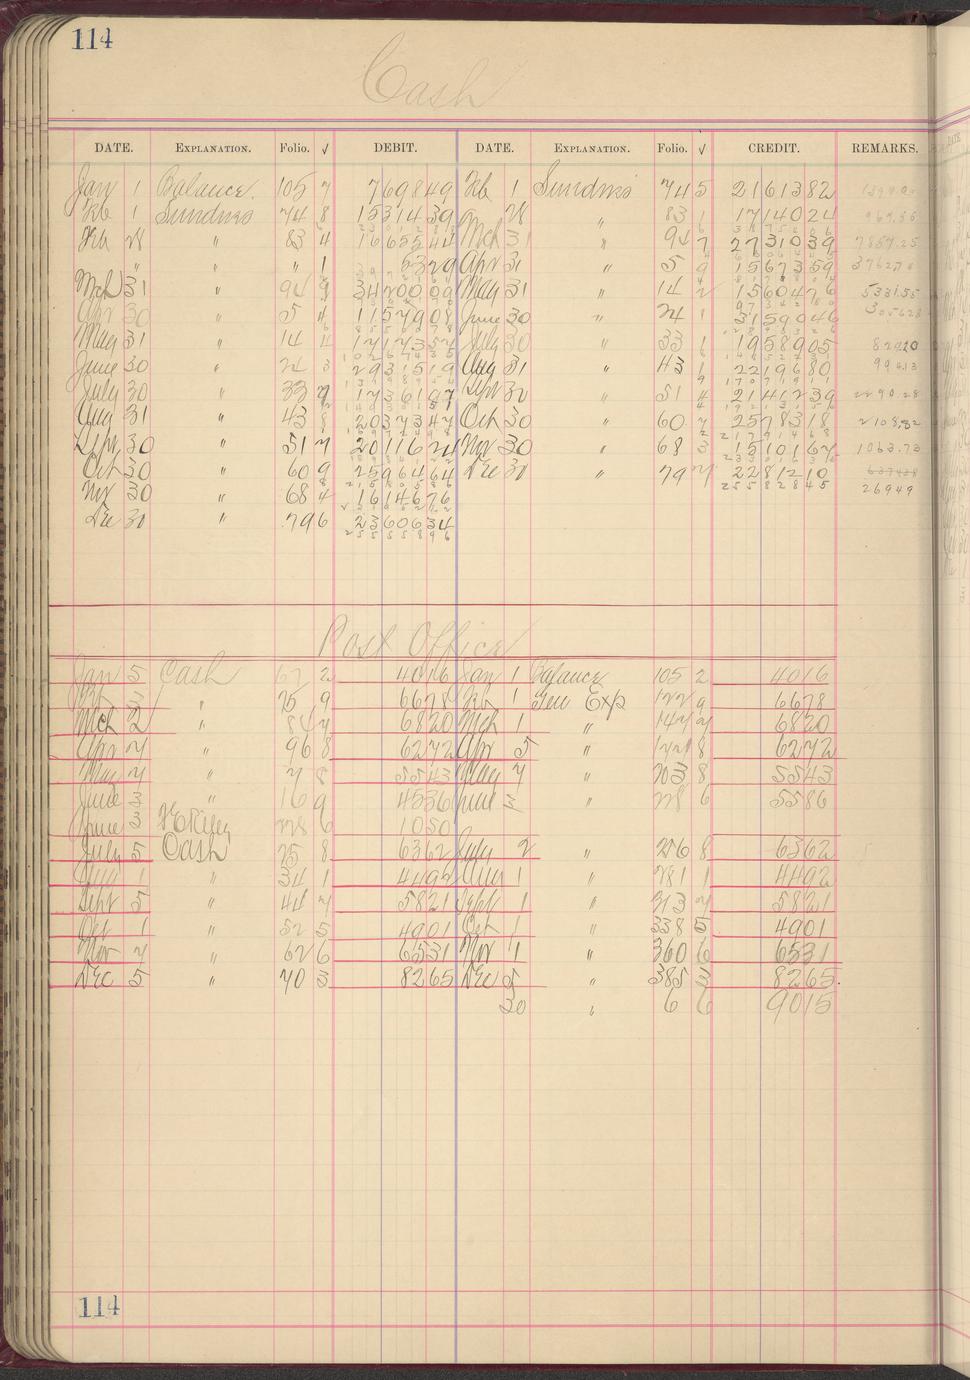 114
Cash
DATE. EXPLANATION. Folio. √ DEBIT. DATE. EXPLANATION. Folio. √ CREDIT. REMARKS.
Jan 1 Balance. 105 7 769849 Feb 1 Sundries 74 5 2161382
Feb 1 Sundries 74 8 1531439 " 28 " 83 1 1714024
Feb 28 " 83 4 1665544 Mch 31 " 94 7 2731039 7857.25
" " " 1 5329 Apr 31 " 5 9 1567359
Mch 31 " 94 9 3420009 May 31 " 14 2 1560476 5331.55
Apr 30 " 5 4 1157908 June 30 " 24 1 3159046 3056.28
May 31 " 14 4 1717357 July 30 " 33 1 1958905
June 30 " 24 3 2931519 Aug 31 " 43 1 2219680 994.13
July 30 " 33 9 Sept 30 " 51 4 2141239 2290.28
Aug 31 " 43 8 2037347 Oct 30 " 60 7 2578318 2108.32
Sept 30 " 51 7 2011624 Nov 30 " 68 3 1510167 1063.72
Oct 30 " 60 9 2596464 Dec 30 " 79 7 2281210
Nov 30 " 68 4 1614676 26949
Dec 30 " 79 6 2360634
Post Office
Jan 5 Cash 67 2 4016 Jan 1 Balance 105 2 4016
Feb 3 " 75 9 6678 Feb 1 Gen Exp 122 9 6678
Mch 2 " 84 7 6820 Mch 1 " 147 7 6820
Apr 4 " 96 8 6272 Apr 5 " 8 6272
May 4 " 7 8 5543 May 4 " 203 8 5543
June 3 " 16 9 4536 June 3 " 228 6 5586
June 3 228 6 1050
July 5 Cash 25 8 6362 July 2 " 256 8 6362
Aug 1 " 34 1 4492 Aug 1 " 281 1 4492
Sept 5 " 44 7 5821 Sept 1 " 313 7 5821
Oct 1 " 52 5 4901 Oct 1 " 338 5 4901
Nov 4 " 62 6 6531 Nov 1 " 360 6 6531
Dec 5 " 70 3 8265 Dec 5 " 385 3 8265
30 " 6 6 9015
114